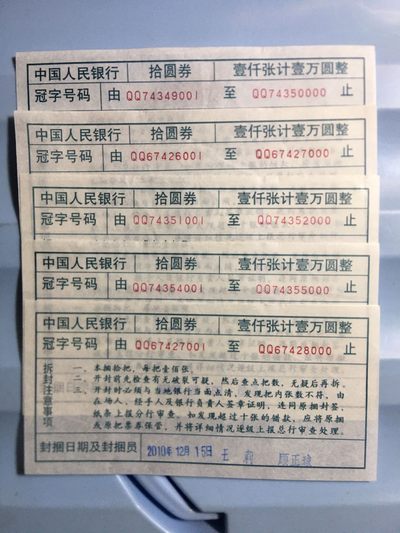 中国人民银行 拾圆券 壹仟张计壹万圆整
冠字号码 由 QQ74349001 至 QQ74350000 止
中国人民银行 拾圆券 壹仟张计壹万圆整
冠字号码 由 QQ67426001 至 QQ67427000 止
中国人民银行 拾圆券 壹仟张计壹万圆整
冠字号码 由 QQ74351001 至 QQ74352000 止
中国人民银行 拾圆券 壹仟张计壹万圆整
冠字号码 由 QQ74354001 至 QQ74355000 止
中国人民银行 拾圆券 壹仟张计壹万圆整
冠字号码 由 QQ67427001 至 QQ67428000 止
拆封注意事项
一、本捆拾把，每把壹佰张。
二、开封前先检查有无破裂可疑，然后查点把数，无疑后再拆。
三、开封时必须与当地银行当面点清，发现把内张数不符，由
在场人、经手人及银行负责人签章证明，连同原捆封签，
纸条上报分行审查。如发现超过十张的错款，应将原捆
及原把票券保管，并将详细情况逐级上报总行审查处理。
封捆日期及封捆员 2010年12月15日 王莉